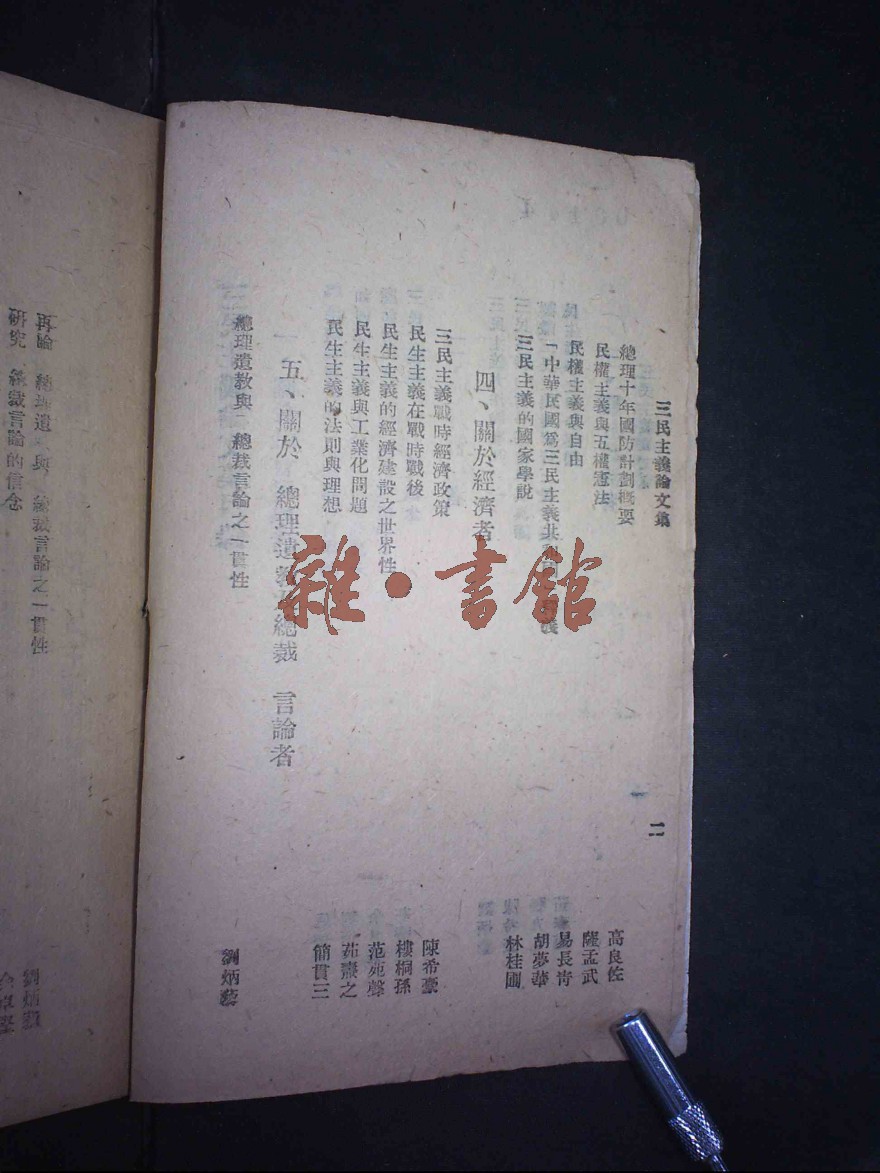 三民主義論文集
二
總理十年國防計劃概要 高良佐
民權主義與五權憲法 薩孟武
民權主義與自由 易長青
「中華民國爲三民主義共 胡夢華
三民主義的國家學說 林桂圃
四、關於經濟者
三民主義戰時經濟政策 陳希豪
民生主義在戰時戰後 樓桐孫
民生主義的經濟建設之世界性 范苑聲
民生主義與工業化問題 茹齋之
民生主義的法則與理想 簡貫三
五、關於 總理遺教 總裁 言論者
總理遺教與 總裁言論之一貫性 劉炳藜
再論 總理遺 與 總裁言論之一貫性 劉炳藜
研究 總裁言論的信念
雜·書館